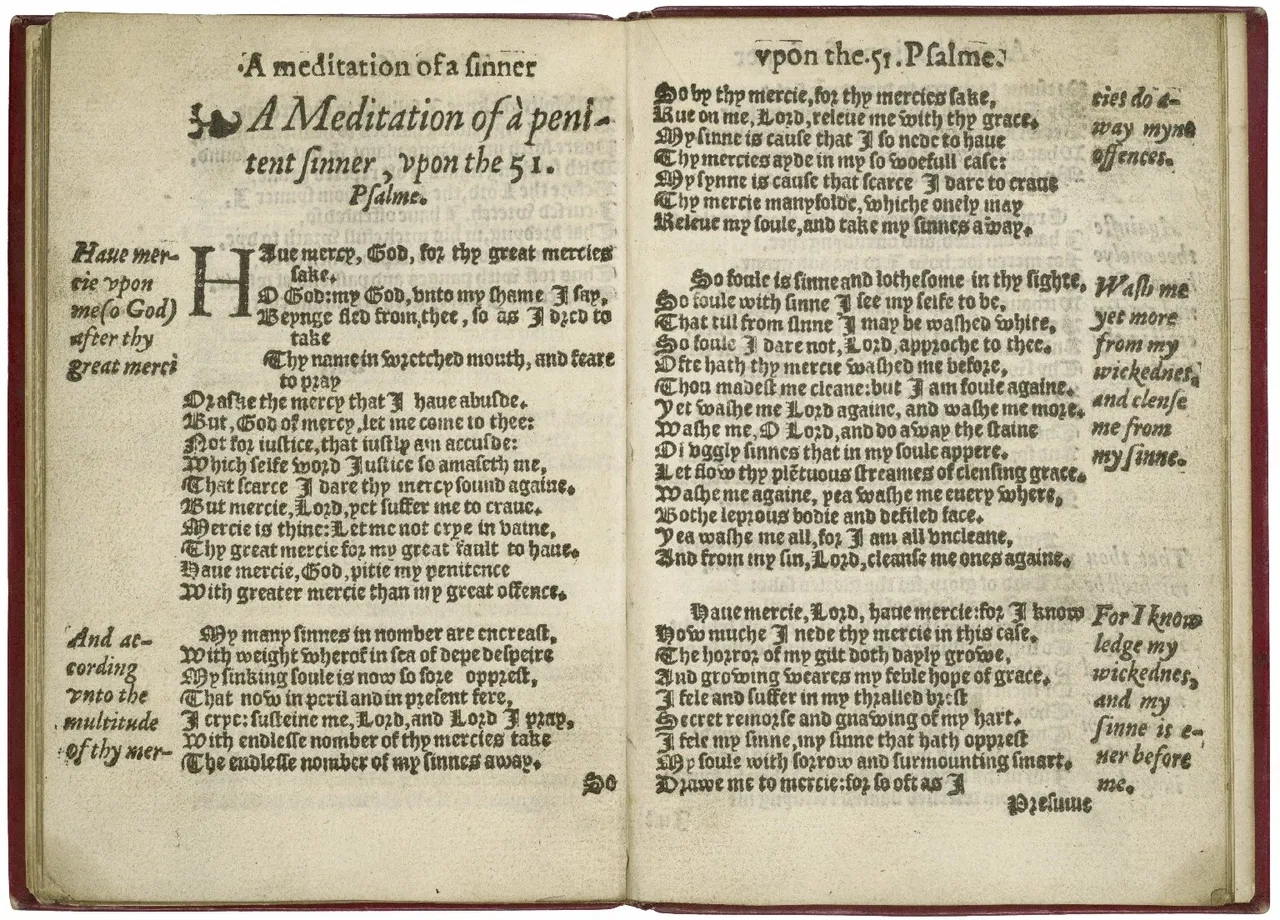 A meditation of a sinner
A Meditation of à peni-
tent sinner, vpon the 51.
Psalme.
Haue mer-
cie vpon
me (o God)
after thy
great merci
HAue mercy, God, for thy great mercies
sake.
O God: my God, vnto my shame I say,
Beynge fled from thee, so as I dred to
take
Thy name in wretched mouth, and feare
to pray
Or aske the mercy that I haue abusde.
But, God of mercy, let me come to thee:
Not for iustice, that iustly am accusde:
Which selfe word Iustice so amaseth me,
That scarce I dare thy mercy sound againe.
But mercie, Lord, yet suffer me to craue.
Mercie is thine: Let me not crye in vaine,
Thy great mercie for my great fault to haue.
Haue mercie, God, pitie my penitence
With greater mercie than my great offence.
And ac-
cording
vnto the
multitude
of thy mer-
My many sinnes in nomber are encreast,
With weight wherof in sea of depe despeire
My sinking soule is now so sore opprest,
That now in peril and in present fere,
I crye: susteine me, Lord, and Lord I pray,
With endlesse nomber of thy mercies take
The endlesse nomber of my sinnes away.
So
vpon the .51. Psalme.
So by thy mercie, for thy mercies sake,
Rue on me, Lord, releue me with thy grace.
My sinne is cause that I so nede to haue
Thy mercies ayde in my so woefull case:
My synne is cause that scarce I dare to craue
Thy mercie manyfolde, whiche onely may
Releue my soule, and take my sinnes away.
cies do a-
way myne
offences.
So foule is sinne and lothesome in thy sighte,
So foule with sinne I see my selfe to be,
That till from sinne I may be washed white,
So foule I dare not, Lord, approche to thee.
Ofte hath thy mercie washed me before,
Thou madest me cleane: but I am foule againe.
Yet washe me Lord againe, and washe me more.
Washe me, O Lord, and do away the staine
Of vggly sinnes that in my soule appere.
Let flow thy plẽtuous streames of clensing grace.
Washe me againe, yea washe me euery where,
Bothe leprous bodie and defiled face.
Yea washe me all, for I am all vncleane,
And from my sin, Lord, cleanse me ones againe.
Wash me
yet more
from my
wickednes,
and clense
me from
my sinne.
Haue mercie, Lord, haue mercie: for I know
How muche I nede thy mercie in this case.
The horror of my gilt doth dayly growe,
And growing weares my feble hope of grace.
I fele and suffer in my thralled brest
Secret remorse and gnawing of my hart.
I fele my sinne, my sinne that hath opprest
My soule with sorrow and surmounting smart.
Drawe me to mercie: for so oft as I
For I know
ledge my
wickednes,
and my
sinne is e-
uer before
me.
Presume